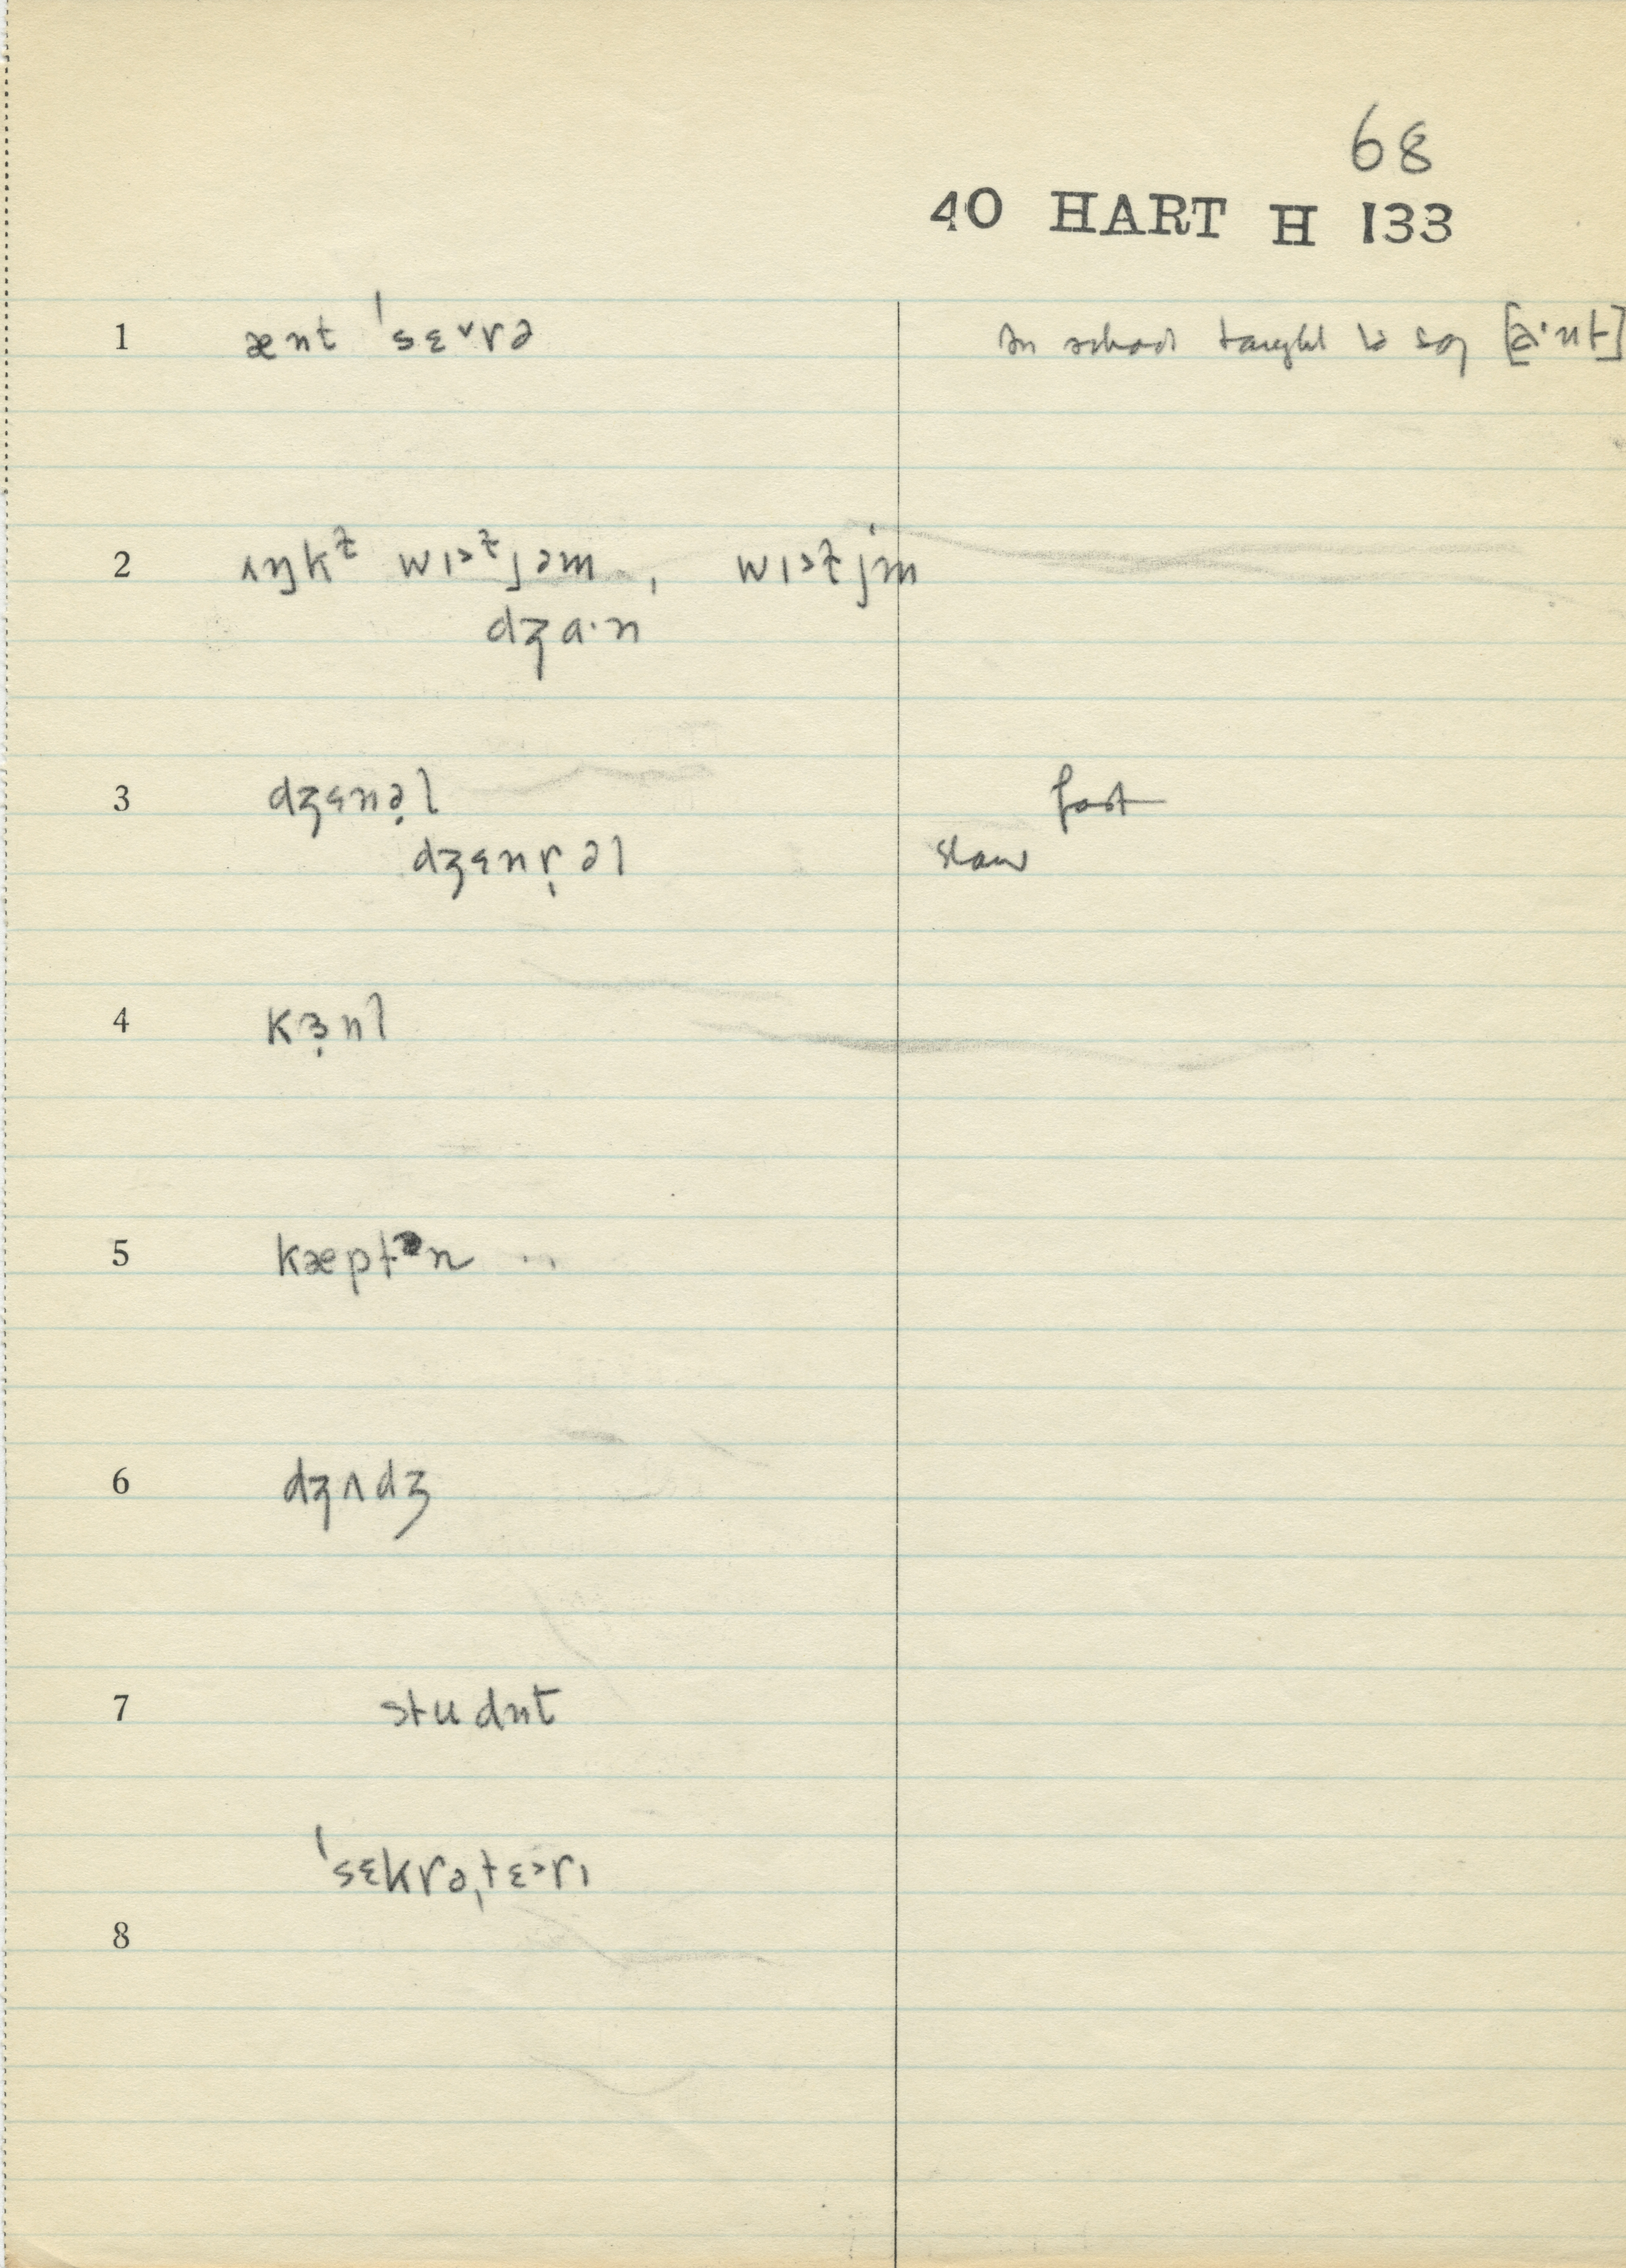 68
40 HART H 133
1 ænt ˈsɛ˅rə In school taught to say [a·nt]
2 ʌŋkᵗ̴ wɪ˃ᵗ̴jəm, wɪ˃ɫjm
dʒɑ·n
3 dʒɛnə̣l fast
dʒɛnṛəl slow
4 kɜ̣nl
5 kæptᵊn
6 dʒʌdʒ
7 studnt
ˈsɛkrəˌtɛ˃rɪ
8